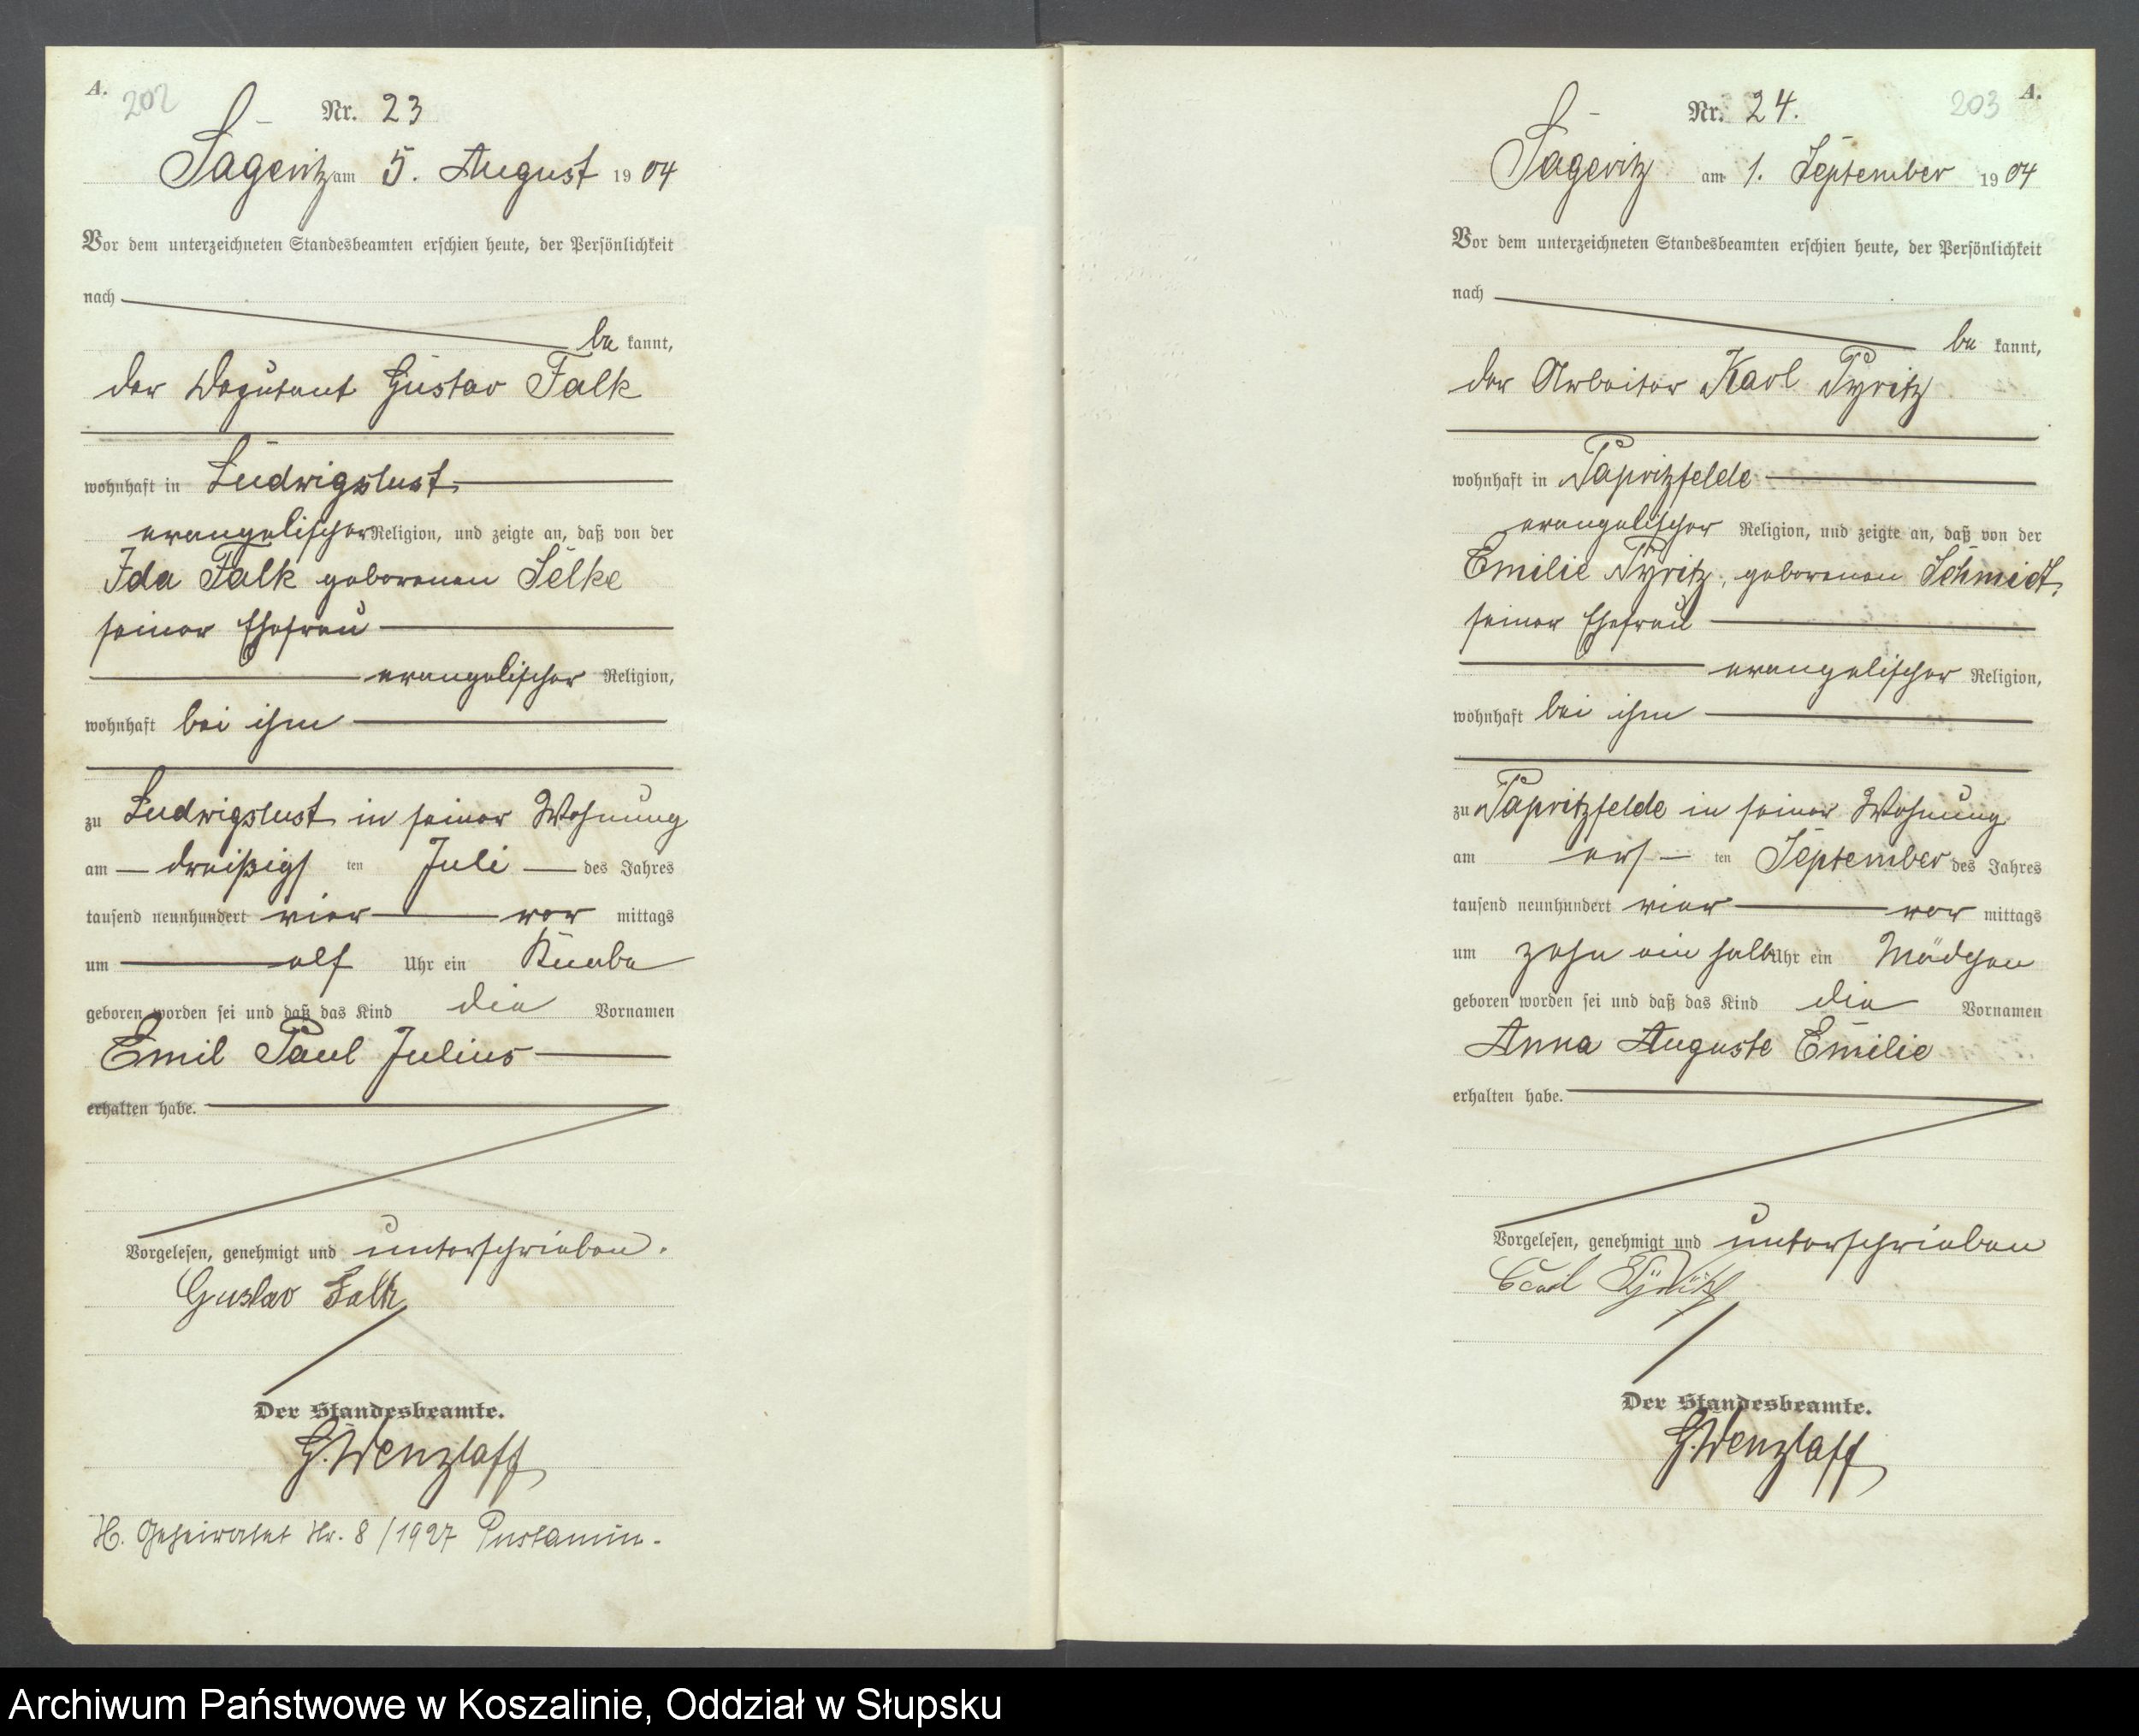 A.
202
Nr. 23
Sageritz am 5. August 1904
Vor dem unterzeichneten Standesbeamten erschien heute, der Persönlichkeit
nach
be kannt,
der Deputant Gustav Falk
wohnhaft in Ludwigslust
evangelischer Religion, und zeigte an, daß von der
Ida Falk geborenen Selke
seiner Ehefrau
evangelischer Religion,
wohnhaft bei ihm
zu Ludwigslust in seiner Wohnung
am dreißigs ten Juli des Jahres
tausend neunhundert vier vor mittags
um elf Uhr ein Knabe
geboren worden sei und daß das Kind die Vornamen
Emil Paul Julius
erhalten habe.
Vorgelesen, genehmigt und unterschrieben.
Gustav Falk
Der Standesbeamte.
G. Wenzlaff
H. Geheiratet Nr. 8/1927 Pustamin.
A.
203
Nr. 24.
Sageritz am 1. September 1904
Vor dem unterzeichneten Standesbeamten erschien heute, der Persönlichkeit
nach
be kannt,
der Arbeiter Karl Pyritz
wohnhaft in Papritzfelde
evangelischer Religion, und zeigte an, daß von der
Emilie Pyritz, geborenen Schmidt,
seiner Ehefrau
evangelischer Religion,
wohnhaft bei ihm
zu Papritzfelde in seiner Wohnung
am ers ten September des Jahres
tausend neunhundert vier vor mittags
um zehn ein halb Uhr ein Mädchen
geboren worden sei und daß das Kind die Vornamen
Anna Auguste Emilie
erhalten habe.
Vorgelesen, genehmigt und unterschrieben
Carl Pyritz
Der Standesbeamte.
G. Wenzlaff
Archiwum Państwowe w Koszalinie, Oddział w Słupsku